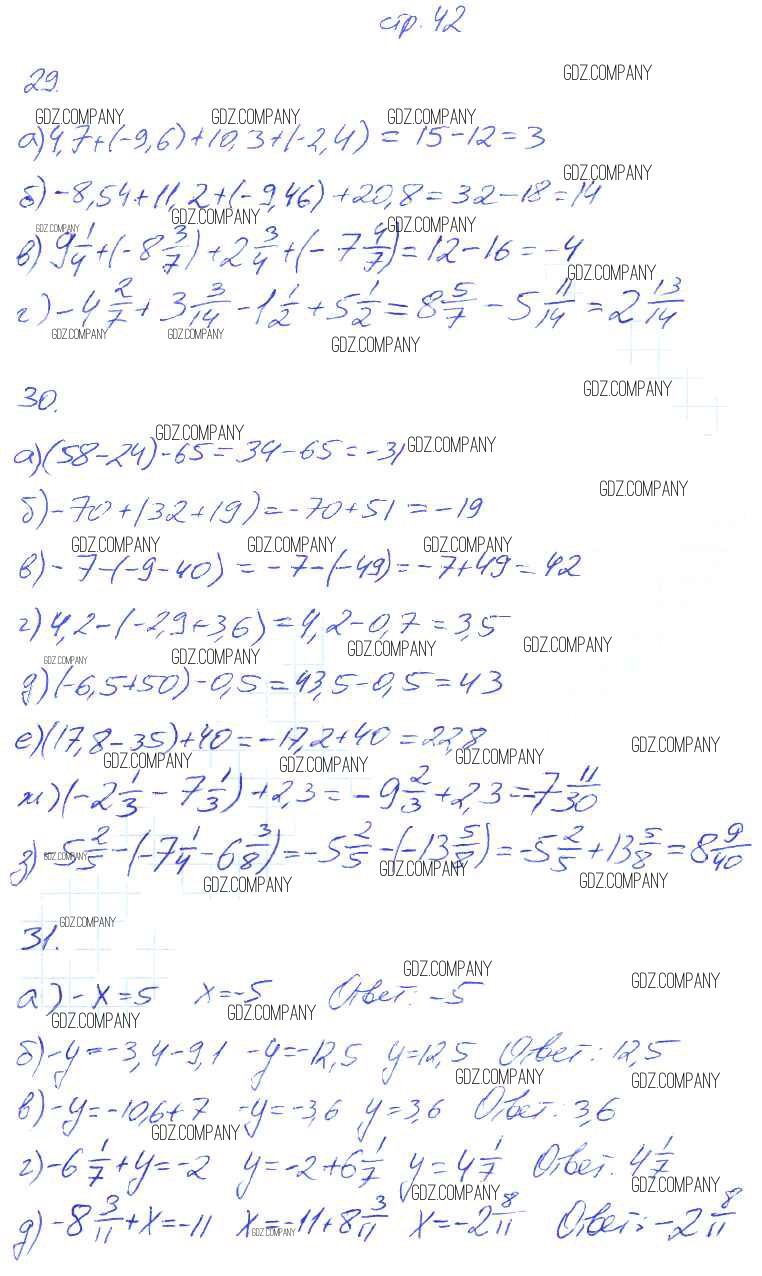 стр. 42
29.
а) 4,7+(-9,6)+10,3+(-2,4) = 15-12=3
б) -8,54+11,2+(-9,46)+20,8=32-18=14
в) 9 1/4+(-8 3/7)+2 3/4+(-7 4/7)=12-16=-4
г) -4 2/7+3 3/14-1 1/2+5 1/2=8 5/7-5 11/14=2 13/14
30.
а) (58-24)-65=34-65=-31
б) -70+(32+19)=-70+51=-19
в) -7-(-9-40)=-7-(-49)=-7+49=42
г) 4,2-(-2,9+3,6)=4,2-0,7=3,5
д) (-6,5+50)-0,5=43,5-0,5=43
е) (17,8-35)+40=-17,2+40=22,8
ж) (-2 1/3-7 1/3)+2,3=-9 2/3+2,3=-7 11/30
з) -5 2/5-(-7 1/4-6 3/8)=-5 2/5-(-13 5/8)=-5 2/5+13 5/8=8 9/40
31.
а) -x=5 x=-5 Ответ: -5
б) -y=-3,4-9,1 -y=-12,5 y=12,5 Ответ: 12,5
в) -y=-10,6+7 -y=-3,6 y=3,6 Ответ: 3,6
г) -6 1/7+y=-2 y=-2+6 1/7 y=4 1/7 Ответ: 4 1/7
д) -8 3/11+x=-11 x=-11+8 3/11 x=-2 8/11 Ответ: -2 8/11
GDZ.COMPANY